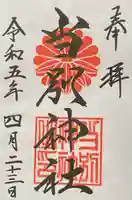 奉拝
当別神社
令和五年 四月 二十三日